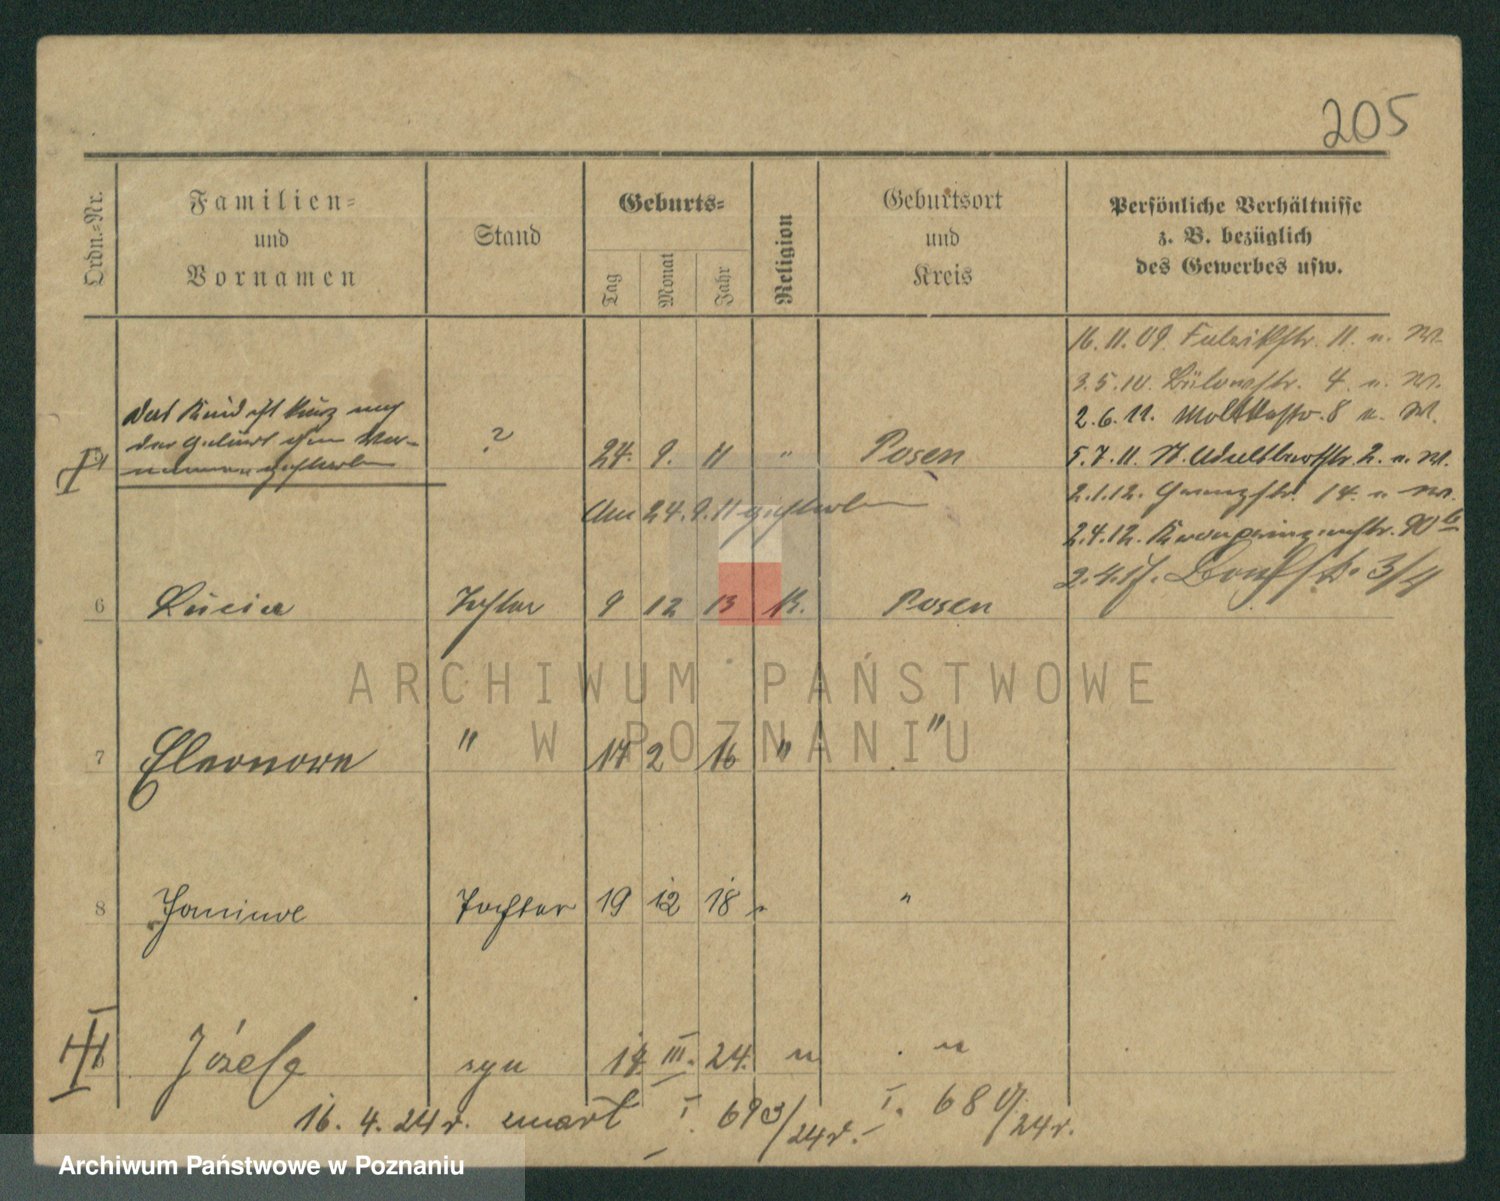 205
Ordn.-Nr.
Familien-
und
Vornamen
Stand
Geburts-
Tag
Monat
Jahr
Religion
Geburtsort
und
Kreis
Persönliche Verhältnisse
z. B. bezüglich
des Gewerbes usw.
16.11.09. Fabrikstr. 11. u. W.
3.5.10. Bülowstr. 4. u. W.
2.6.11. Moltkestr. 8 u. W.
5.7.11. N. Adalbertstr. 2. u. W.
2.1.12. Grenzstr. 14. u. W.
2.4.12. Kronprinzenstr. 90
2.4.17. 3/4
Das Kind ist kurz nach
der Geburt ohne Vor-
namen gestorben
? 24. 9. 11 " Posen
Am 24.9.11 gestorben
6 Lucia Tochter 9 12 13 K. Posen
7 Eleonore " 14 2 16 " "
8 Janine Tochter 19 12 18 " "
Józefa syn 14. III. 24. " "
16. 4. 24 r. umarł I. 693/24 r. I. 680/24 r.
ARCHIWUM PAŃSTWOWE
W POZNANIU
Archiwum Państwowe w Poznaniu